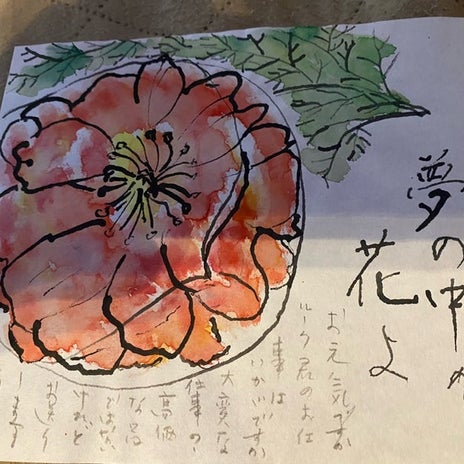 夢の中
花よ
お元気ですか
ルーク君のお仕
事は
いかがですか
大変な
仕事の、
高価
な品
ではない
けれど
お送り
します